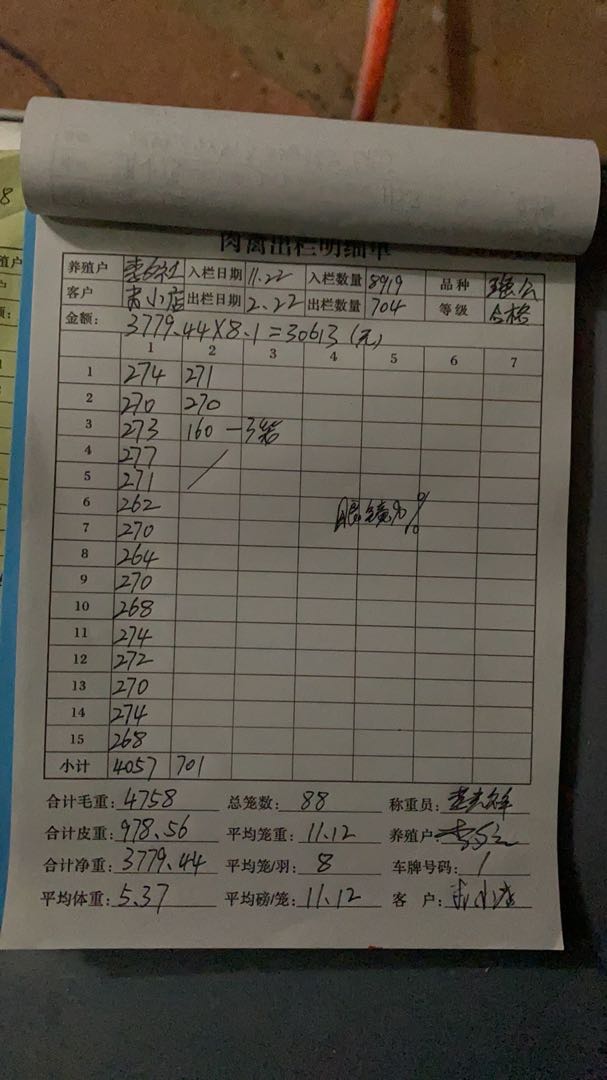 肉禽出栏明细单
养殖户 入栏日期 11.22 入栏数量 8919 品种
客户 肖小店 出栏日期 2.22 出栏数量 704 等级 合格
金额: 3779.44×8.1=30613(元)
1 2 3 4 5 6 7
1 274 271
2 270 270
3 273 160 一3笼
4 277
5 271
6 262
7 270
8 264
9 270
10 268
11 274
12 272
13 270
14 274
15 268
小计 4057 701
眼镜%
合计毛重: 4758 总笼数: 88 称重员:
合计皮重: 978.56 平均笼重: 11.12 养殖户
合计净重: 3779.44 平均笼/羽: 8 车牌号码: 1
平均体重: 5.37 平均磅/笼: 11.12 客 户: